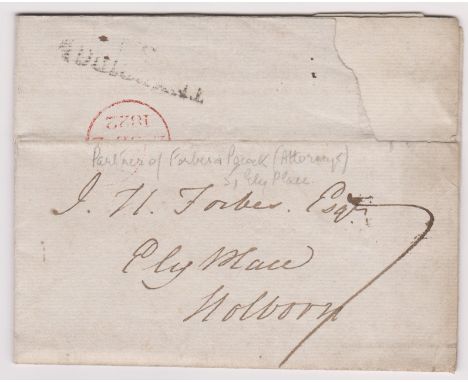 1822
Partner of Forbes & Pocock (Attorneys)
5, Ely Place
J. H. Forbes. Esqr.
Ely Place
Holborn
7